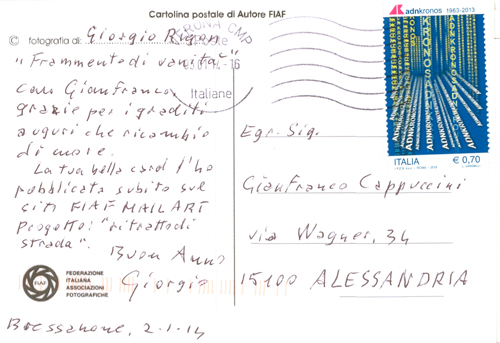 Cartolina postale di Autore FIAF
© fotografia di: Giorgio Rigon
"Frammento di vanità"
Caro Gianfranco,
grazie per i graditi
auguri che ricambio
di cuore.
La tua bella card l'ho
pubblicata subito sul
sito FIAF MAIL ART
Progetto: "ritratto di
strada".
Buon Anno
Giorgio
FIAF
FEDERAZIONE
ITALIANA
ASSOCIAZIONI
FOTOGRAFICHE
Bressanone, 2-1-14
CMP
Italiane
adnkronos 1963-2013
ADNKRONOS
ITALIA
€ 0,70
Egr. Sig.
Gianfranco Cappuccini
via Wagner, 34
15100 ALESSANDRIA